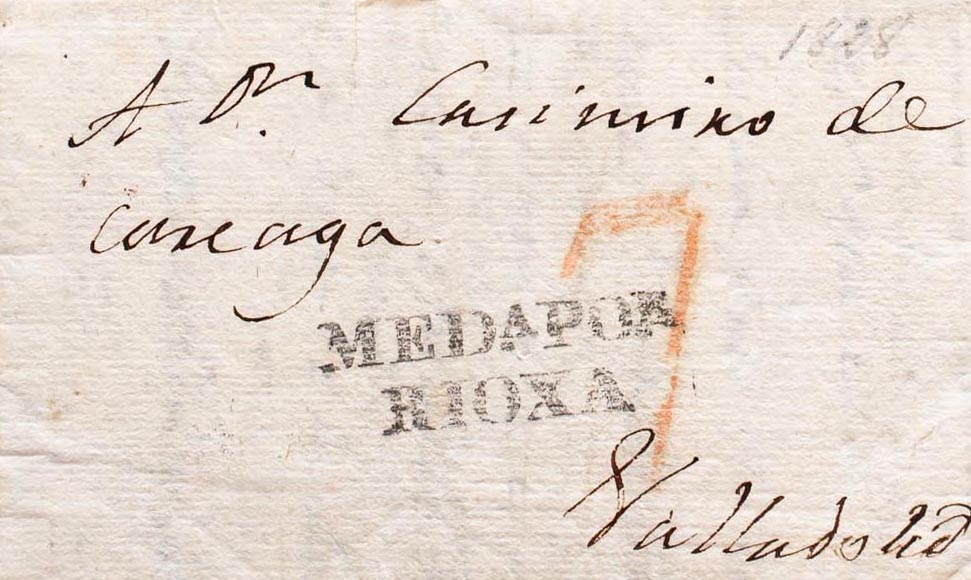 1828
A Dn. Casimiro de
Careaga
7
MEDAPOR
RIOXA
Valladolid